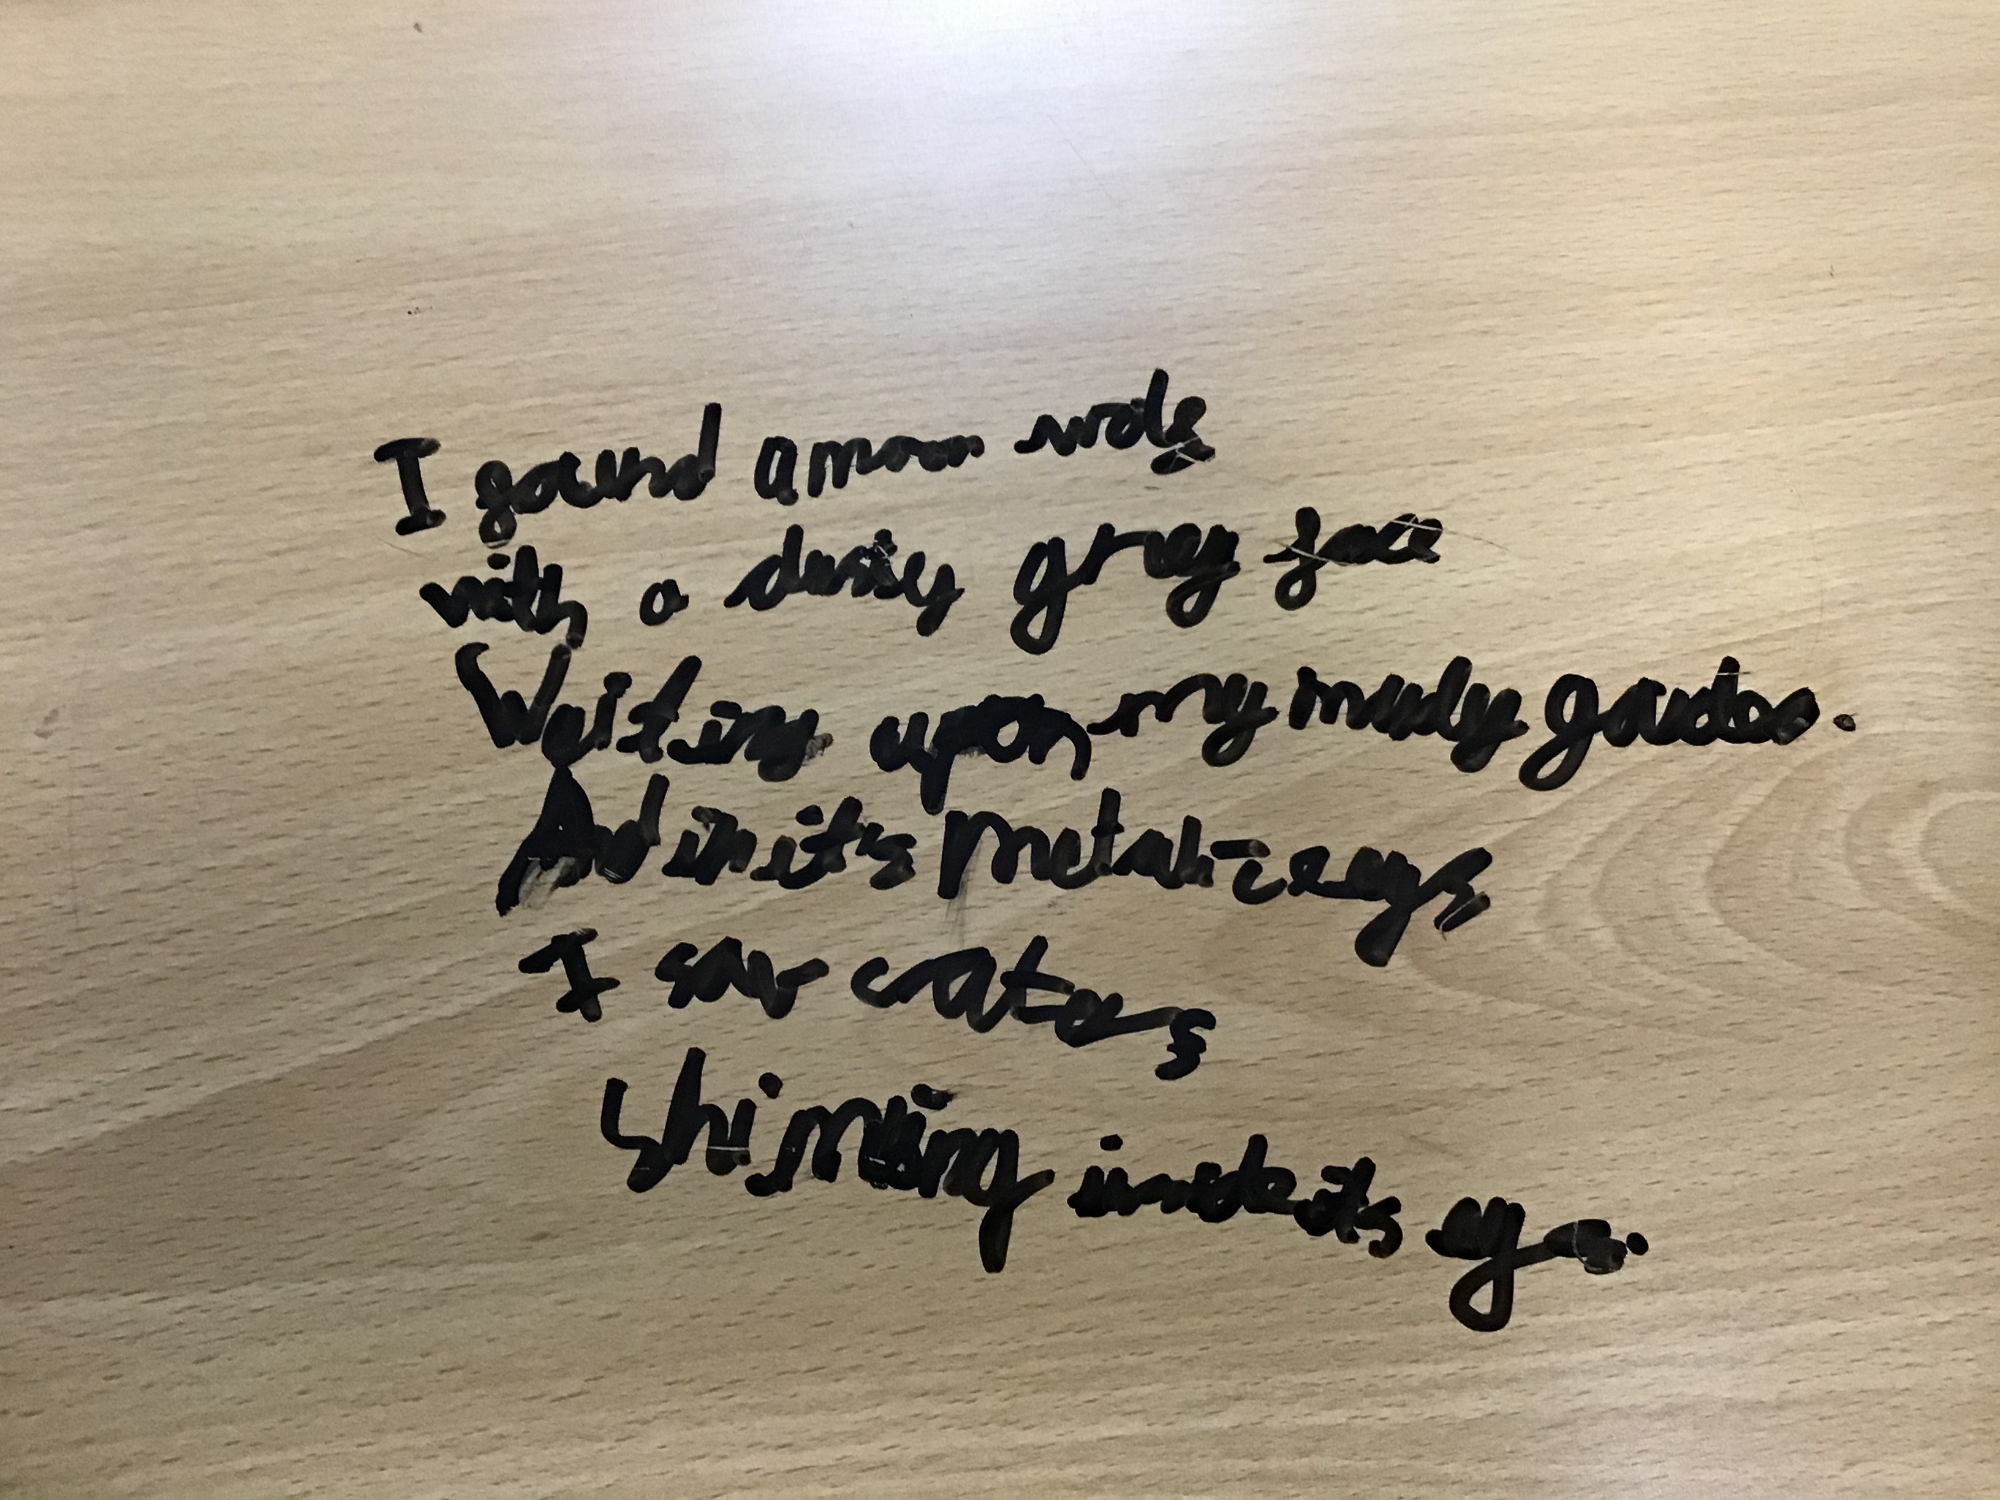 I found a moon mole
with a dusty grey face
Waiting upon my mudy garden.
And in it's metalic eeys
I saw craters
Shining inside its eye.